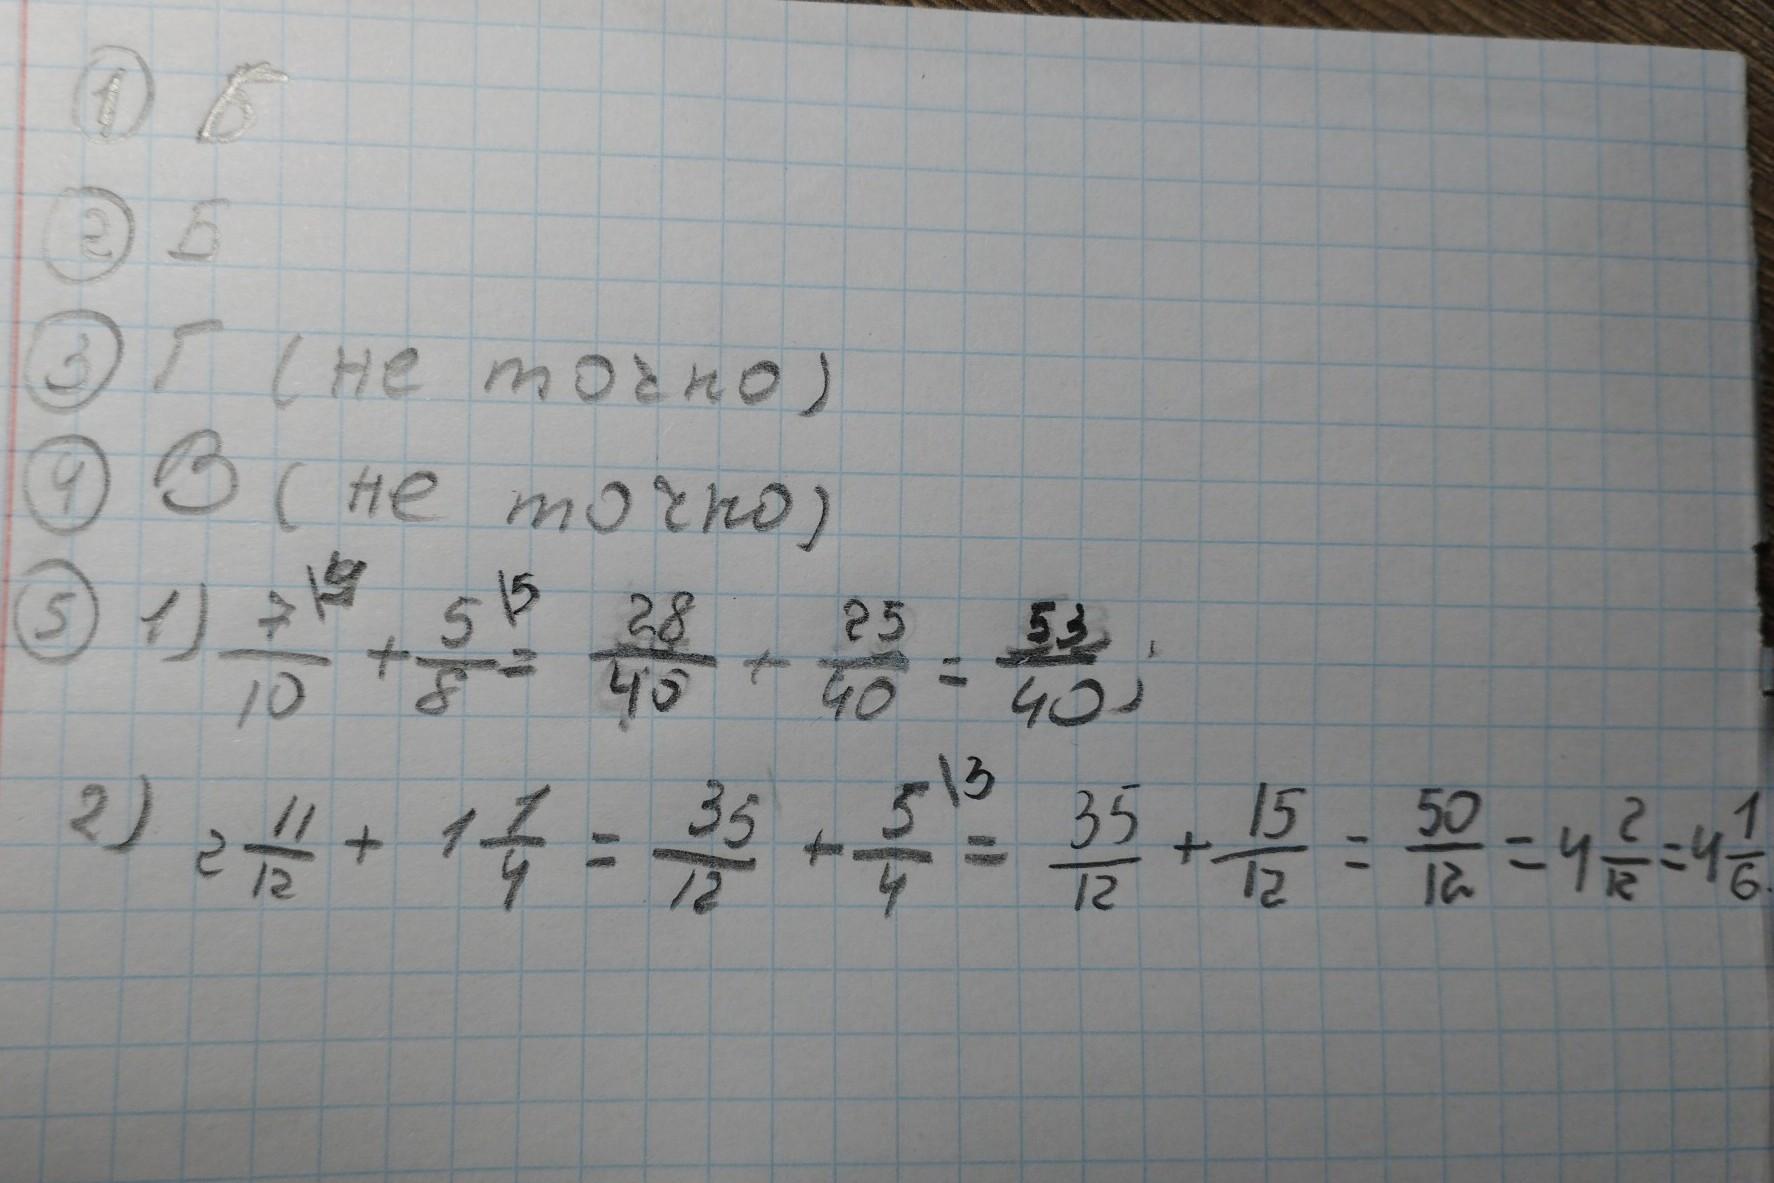 ① Б
② Б
③ Г (не точно)
④ В (не точно)
⑤ 1) 7/10 \4 + 5/8 \5 = 28/40 + 25/40 = 53/40;
2) 2 11/12 + 1 1/4 = 35/12 + 5/4 \3 = 35/12 + 15/12 = 50/12 = 4 2/12 = 4 1/6.